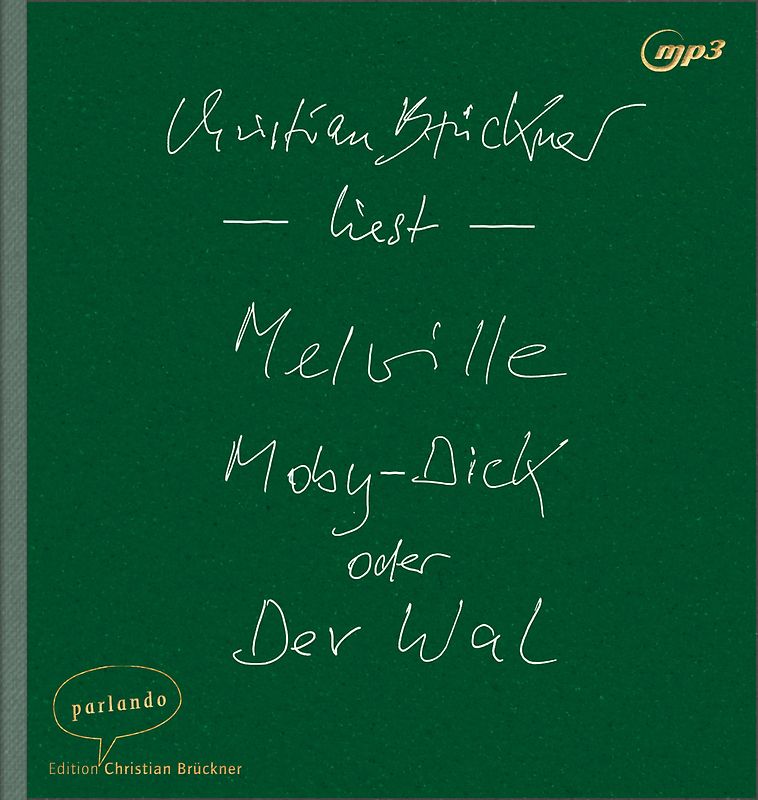 mp3
Christian Brückner
— liest —
Melville
Moby-Dick
oder
Der Wal
parlando
Edition Christian Brückner